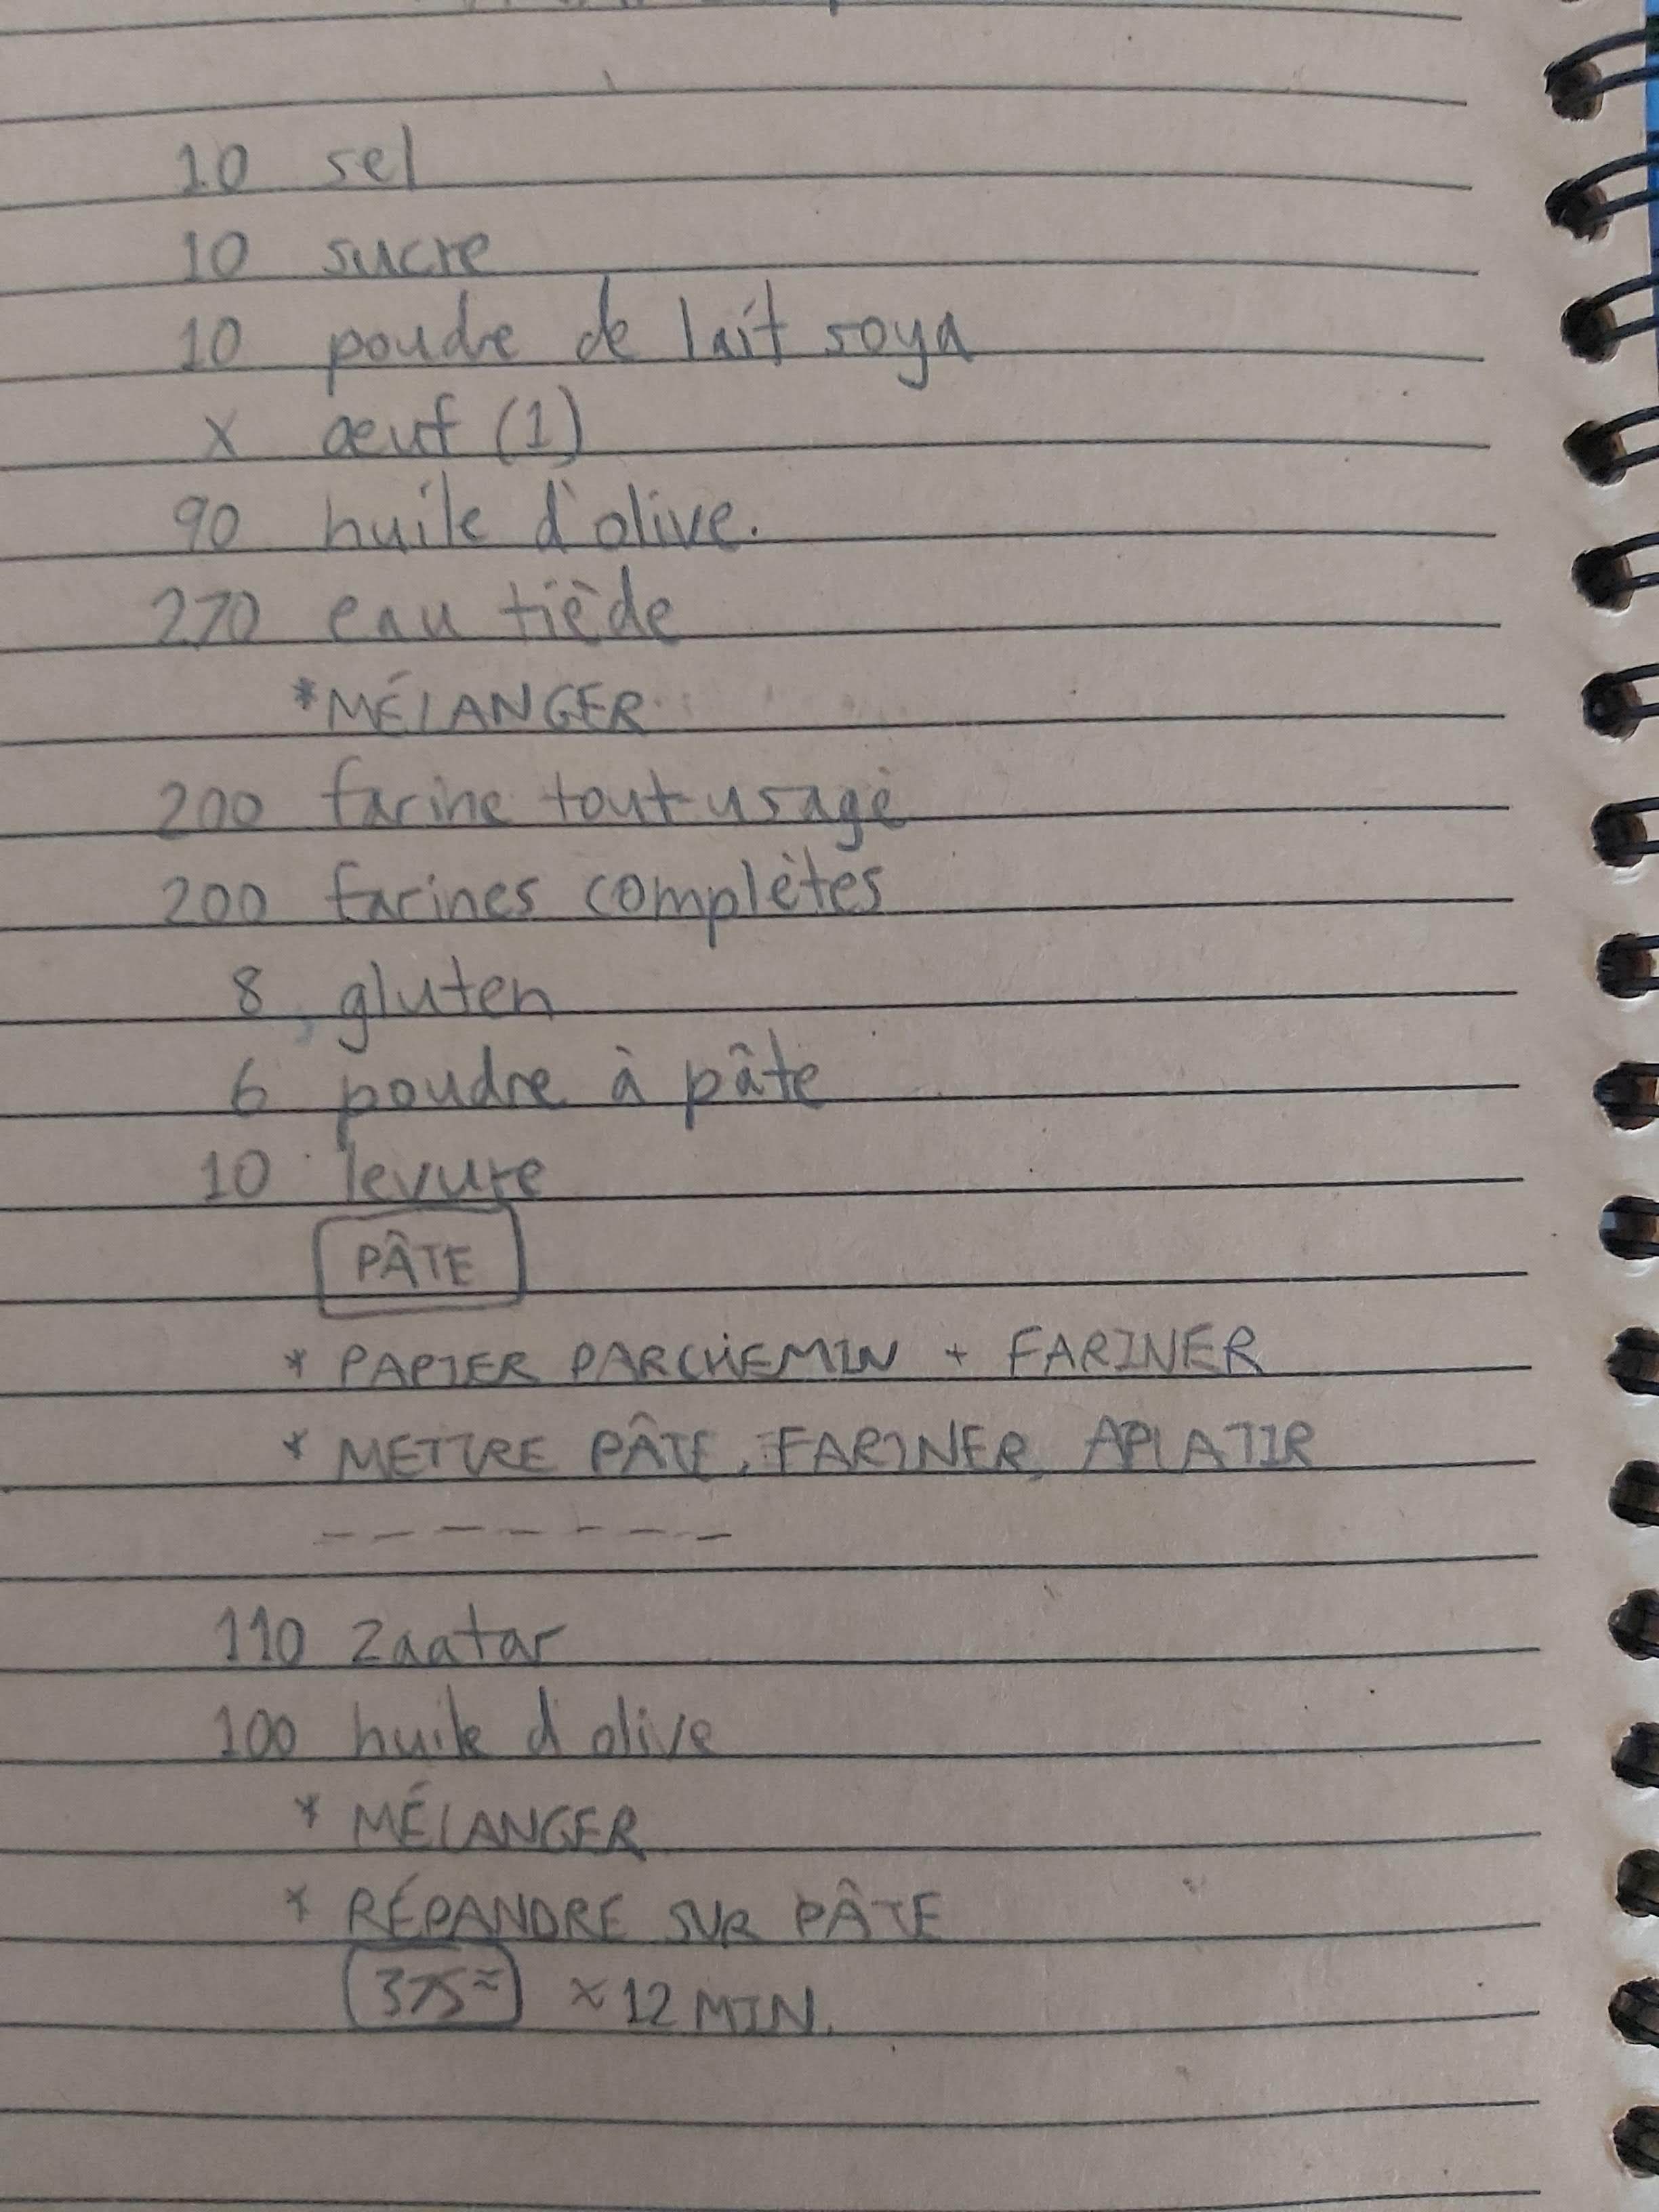 10 sel
10 sucre
10 poudre de lait soya
x œuf (1)
90 huile d'olive.
270 eau tiède
*MÉLANGER
200 farine tout usage
200 farines complètes
8 gluten
6 poudre à pâte
10 levure
PÂTE
* PAPIER PARCHEMIN + FARINER
* METTRE PÂTE, FARINER, APLATIR
--------
110 zaatar
100 huile d'olive
* MÉLANGER
* RÉPANDRE SUR PÂTE
375≈ x 12 MIN.